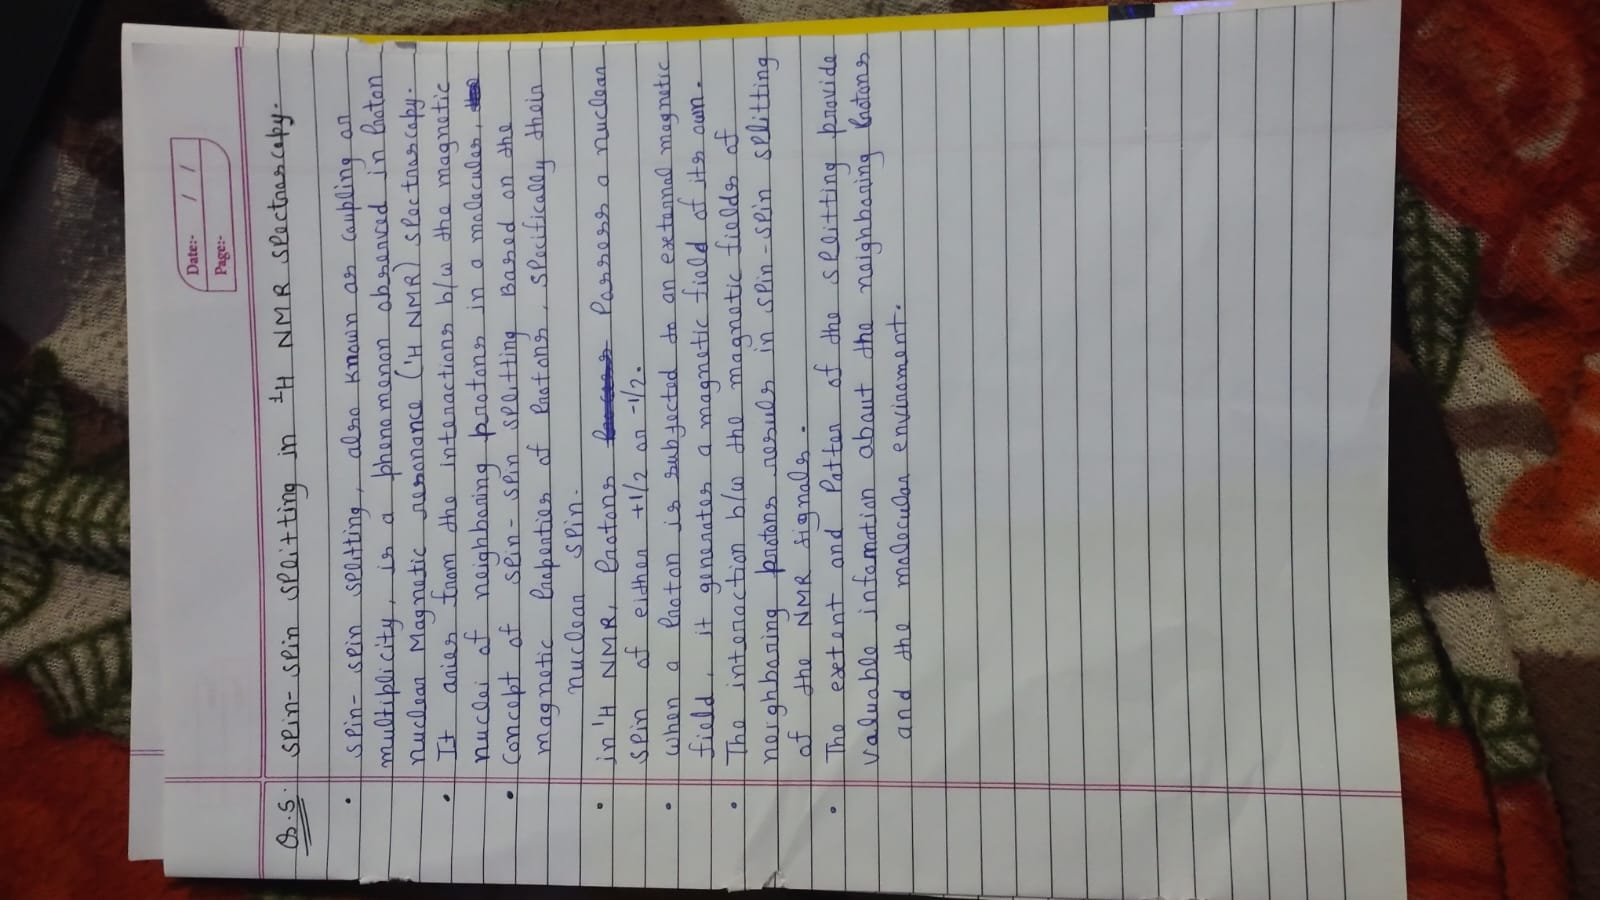 Date:- / /
Page:-
Q.5. Spin-spin splitting in ¹H NMR spectroscopy.
• Spin-spin splitting, also known as coupling or
multiplicity, is a phenomenon observed in Proton
nuclear Magnetic resonance (¹H NMR) spectroscopy.
• It aries from the interactions b/w the magnetic
nuclei of neighboring protons in a molecular,
• Concept of spin-spin splitting Based on the
magnetic Properties of Protons, specifically their
nuclear spin.
• in ¹H NMR, Protons Possess a nuclear
spin of either +1/2 or -1/2.
• when a Proton is subjected to an external magnetic
field, it generates a magnetic field of its own.
• The interaction b/w the magnetic fields of
neighboring protons resuls in spin-spin splitting
of the NMR signals.
• The extent and Patter of the splitting provide
valuable infomation about the neighboring Protons
and the molecular enviroment.